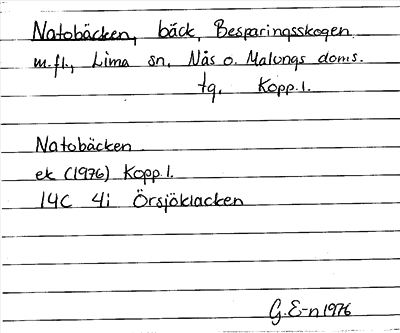 Natobäcken, bäck, Besparingsskogen
m.fl., Lima sn, Nås o. Malungs doms.
tg, Kopp. l.
Natobäcken
ek (1976) Kopp. l.
14C 4i Örsjöklacken
G. E-n 1976